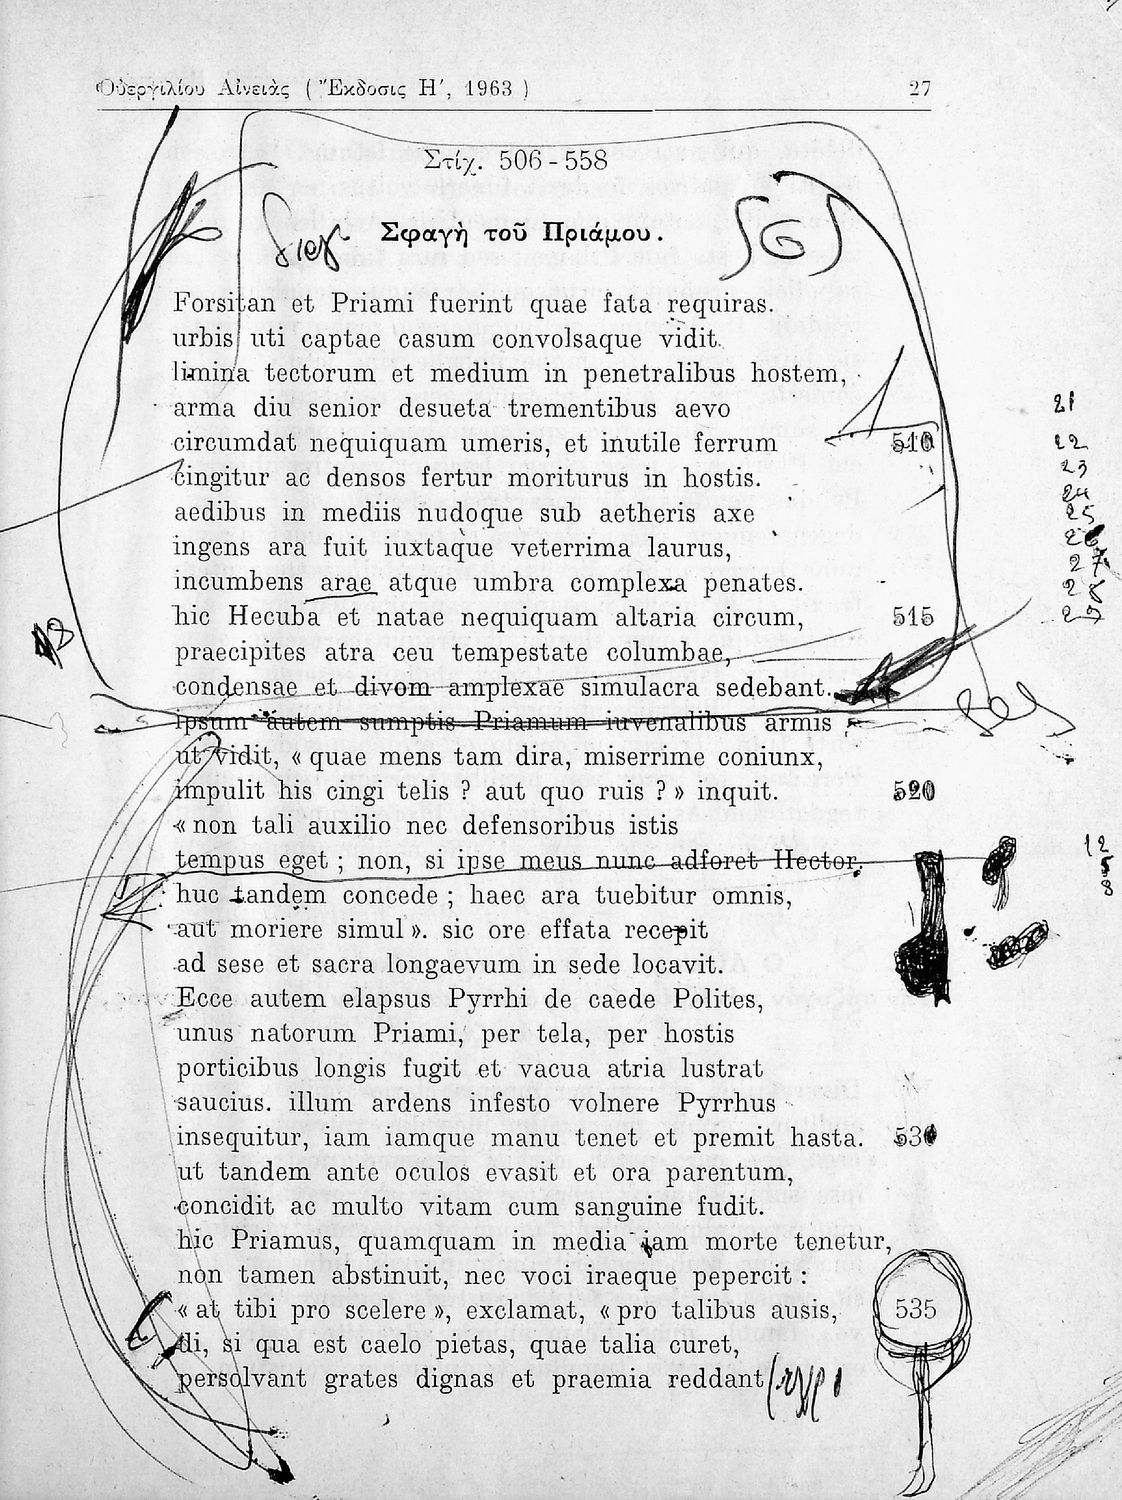 Οὐεργιλίου Αἰνειὰς ( Ἔκδοσις Η′, 1963 ) 27
Στίχ. 506 - 558
Σφαγὴ τοῦ Πριάμου.
Forsitan et Priami fuerint quae fata requiras.
urbis uti captae casum convolsaque vidit
limina tectorum et medium in penetralibus hostem,
arma diu senior desueta trementibus aevo
21
circumdat nequiquam umeris, et inutile ferrum 510
22
cingitur ac densos fertur moriturus in hostis.
23
24
aedibus in mediis nudoque sub aetheris axe
25
26
ingens ara fuit iuxtaque veterrima laurus,
27
incumbens arae atque umbra complexa penates.
28
hic Hecuba et natae nequiquam altaria circum, 515
29
praecipites atra ceu tempestate columbae,
condensae et divom amplexae simulacra sedebant.
ipsum autem sumptis Priamum iuvenalibus armis
ut vidit, « quae mens tam dira, miserrime coniunx,
impulit his cingi telis ? aut quo ruis ? » inquit. 520
« non tali auxilio nec defensoribus istis
12
tempus eget ; non, si ipse meus nunc adforet Hector.
8
huc tandem concede ; haec ara tuebitur omnis,
aut moriere simul ». sic ore effata recepit
ad sese et sacra longaevum in sede locavit.
Ecce autem elapsus Pyrrhi de caede Polites,
unus natorum Priami, per tela, per hostis
porticibus longis fugit et vacua atria lustrat
saucius. illum ardens infesto volnere Pyrrhus
insequitur, iam iamque manu tenet et premit hasta. 530
ut tandem ante oculos evasit et ora parentum,
concidit ac multo vitam cum sanguine fudit.
hic Priamus, quamquam in media iam morte tenetur,
non tamen abstinuit, nec voci iraeque pepercit :
« at tibi pro scelere », exclamat, « pro talibus ausis, 535
di, si qua est caelo pietas, quae talia curet,
persolvant grates dignas et praemia reddant